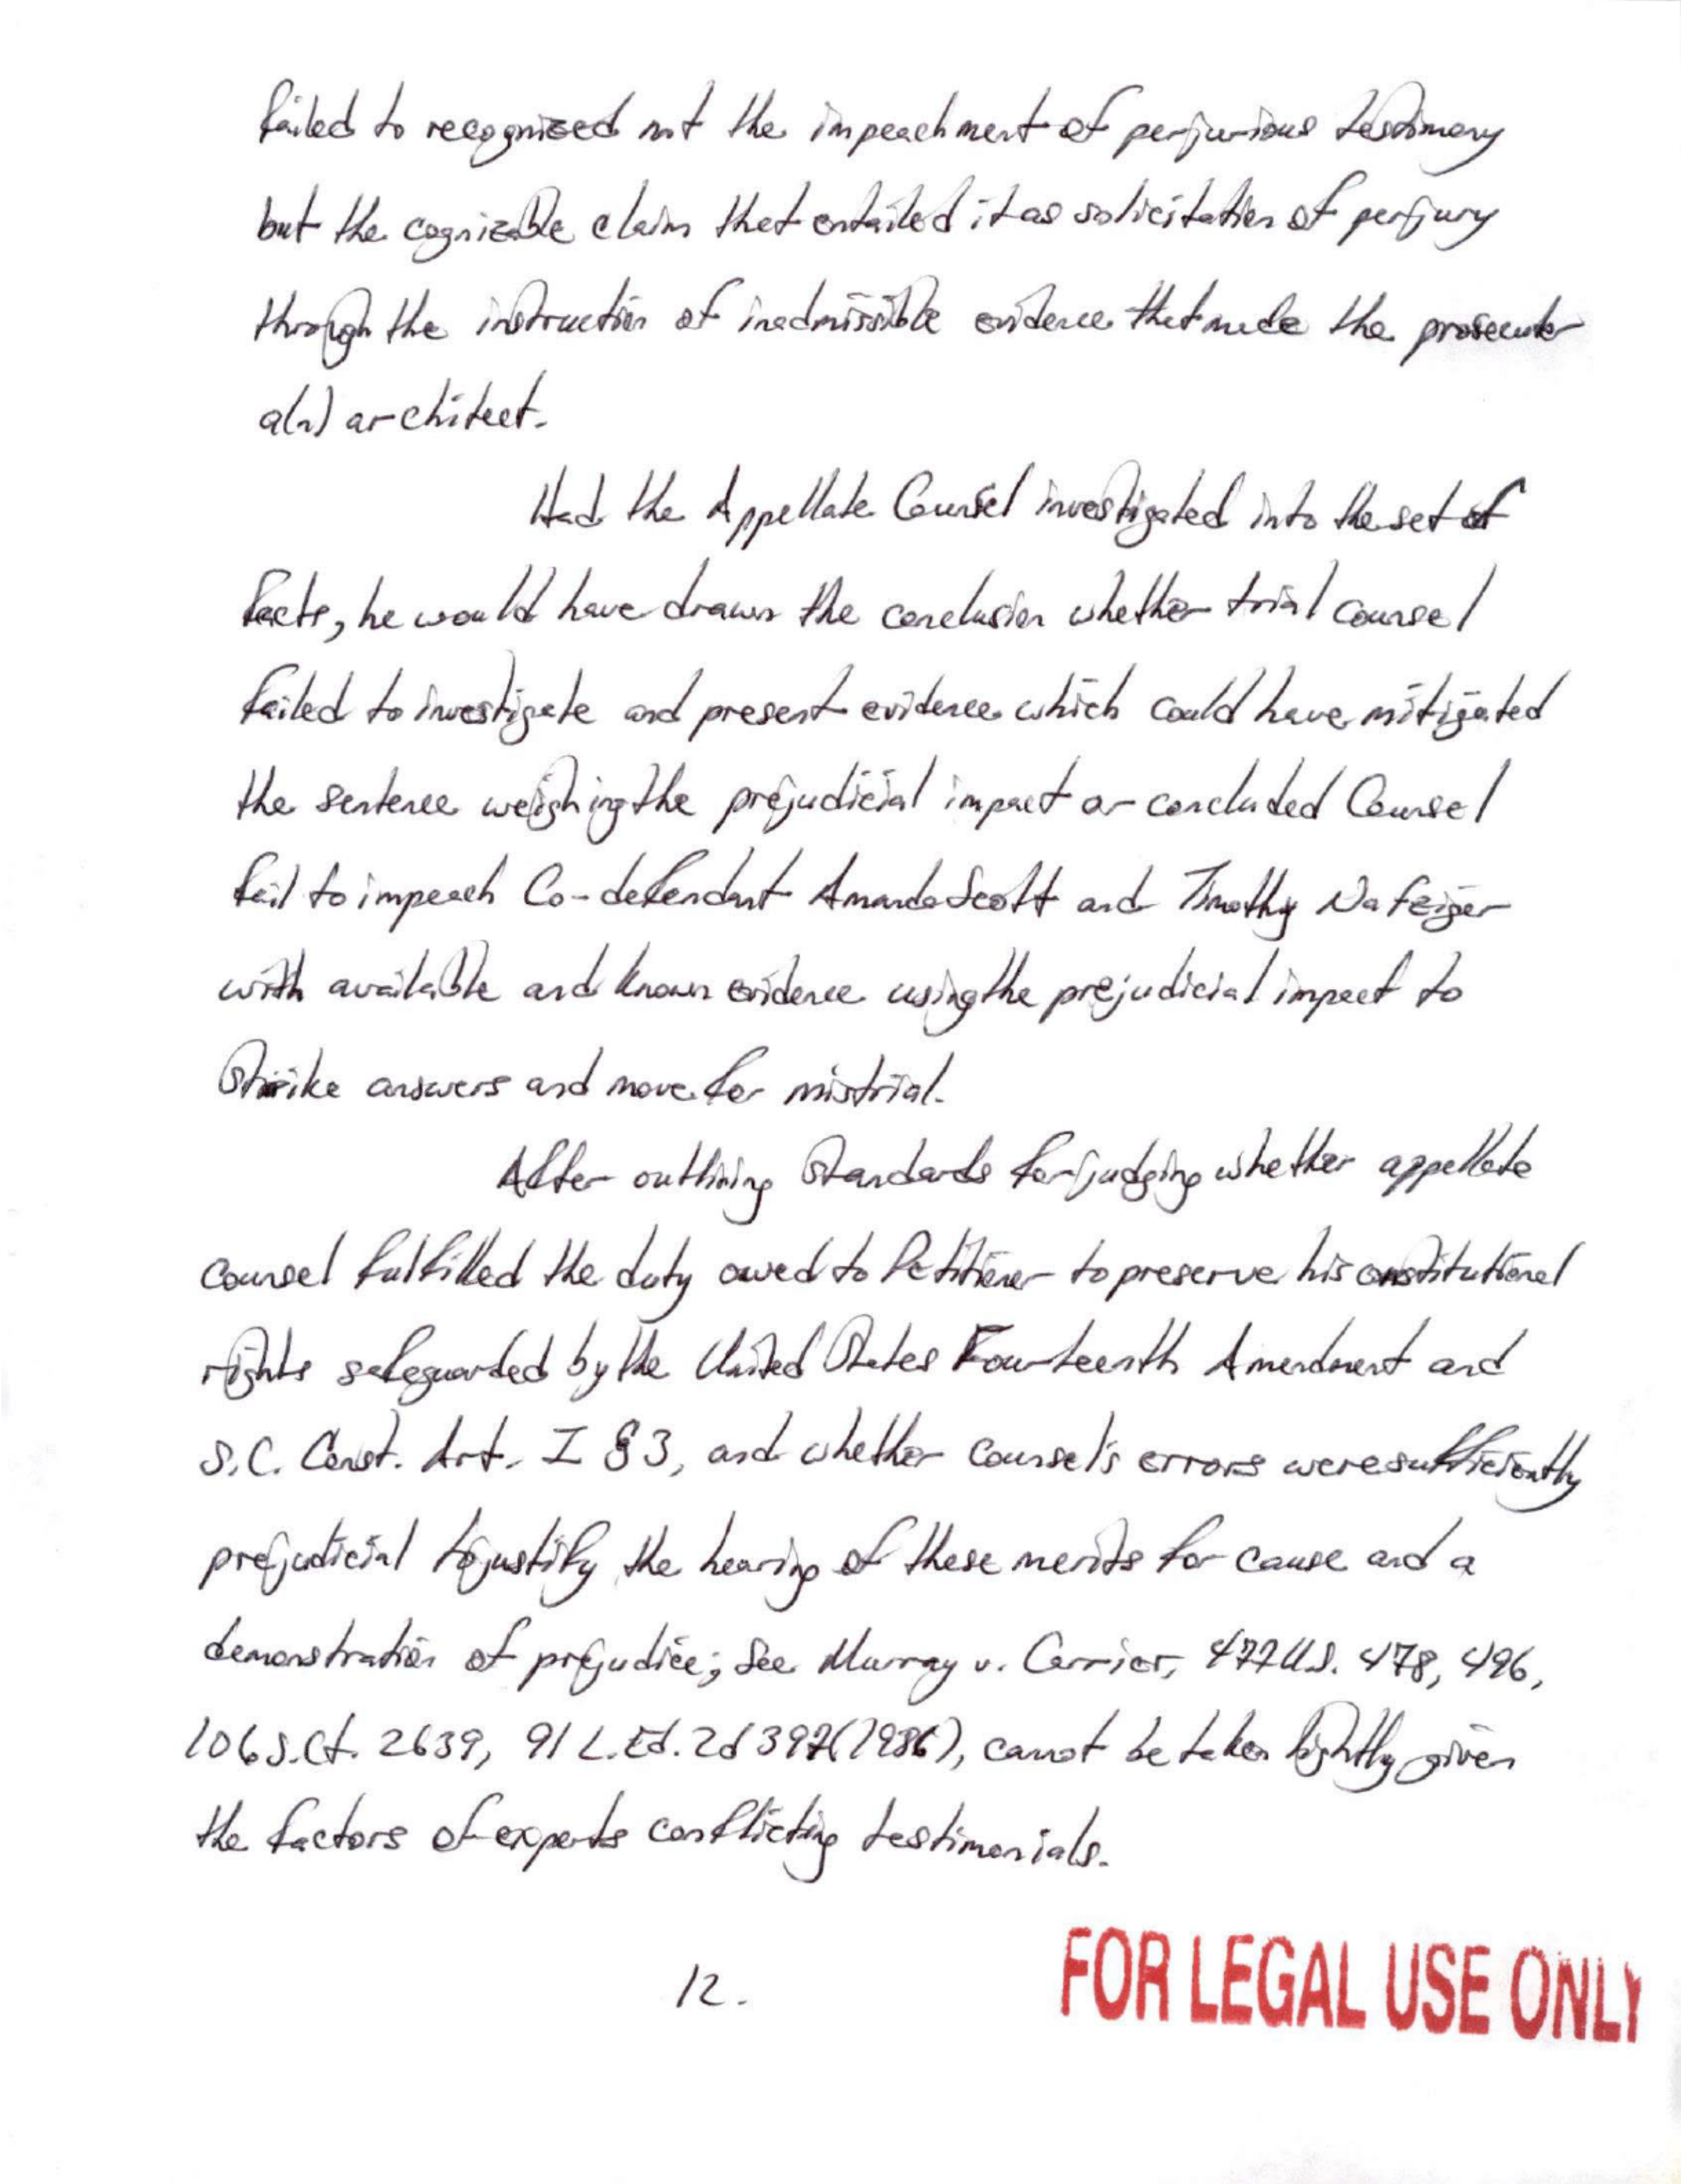 failed to recognized not the impeachment of perjurious testimony
but the cognizable claim that entailed it as solicitation of perjury
through the instruction of inadmissible evidence that made the prosecutor
a(n) architect.
Had the Appellate Counsel investigated into the set of
facts, he would have drawn the conclusion whether trial counsel
failed to investigate and present evidence which could have mitigated
the sentence weighing the prejudicial impact or concluded Counsel
fail to impeach Co-defendant Amanda Scott and Timothy Nafziger
with available and known evidence using the prejudicial impact to
Strike answers and move for mistrial.
After outlining Standards for judging whether appellate
counsel fulfilled the duty owed to Petitioner to preserve his constitutional
rights safeguarded by the United States Fourteenth Amendment and
S.C. Const. Art. I § 3, and whether counsel's errors were sufficiently
prejudicial to justify the hearing of these merits for cause and a
demonstration of prejudice; See Murray v. Carrier, 477 U.S. 478, 496,
106 S.Ct. 2639, 91 L.Ed.2d 397 (1986), cannot be taken lightly given
the factors of experts conflicting testimonials.
12.
FOR LEGAL USE ONLY